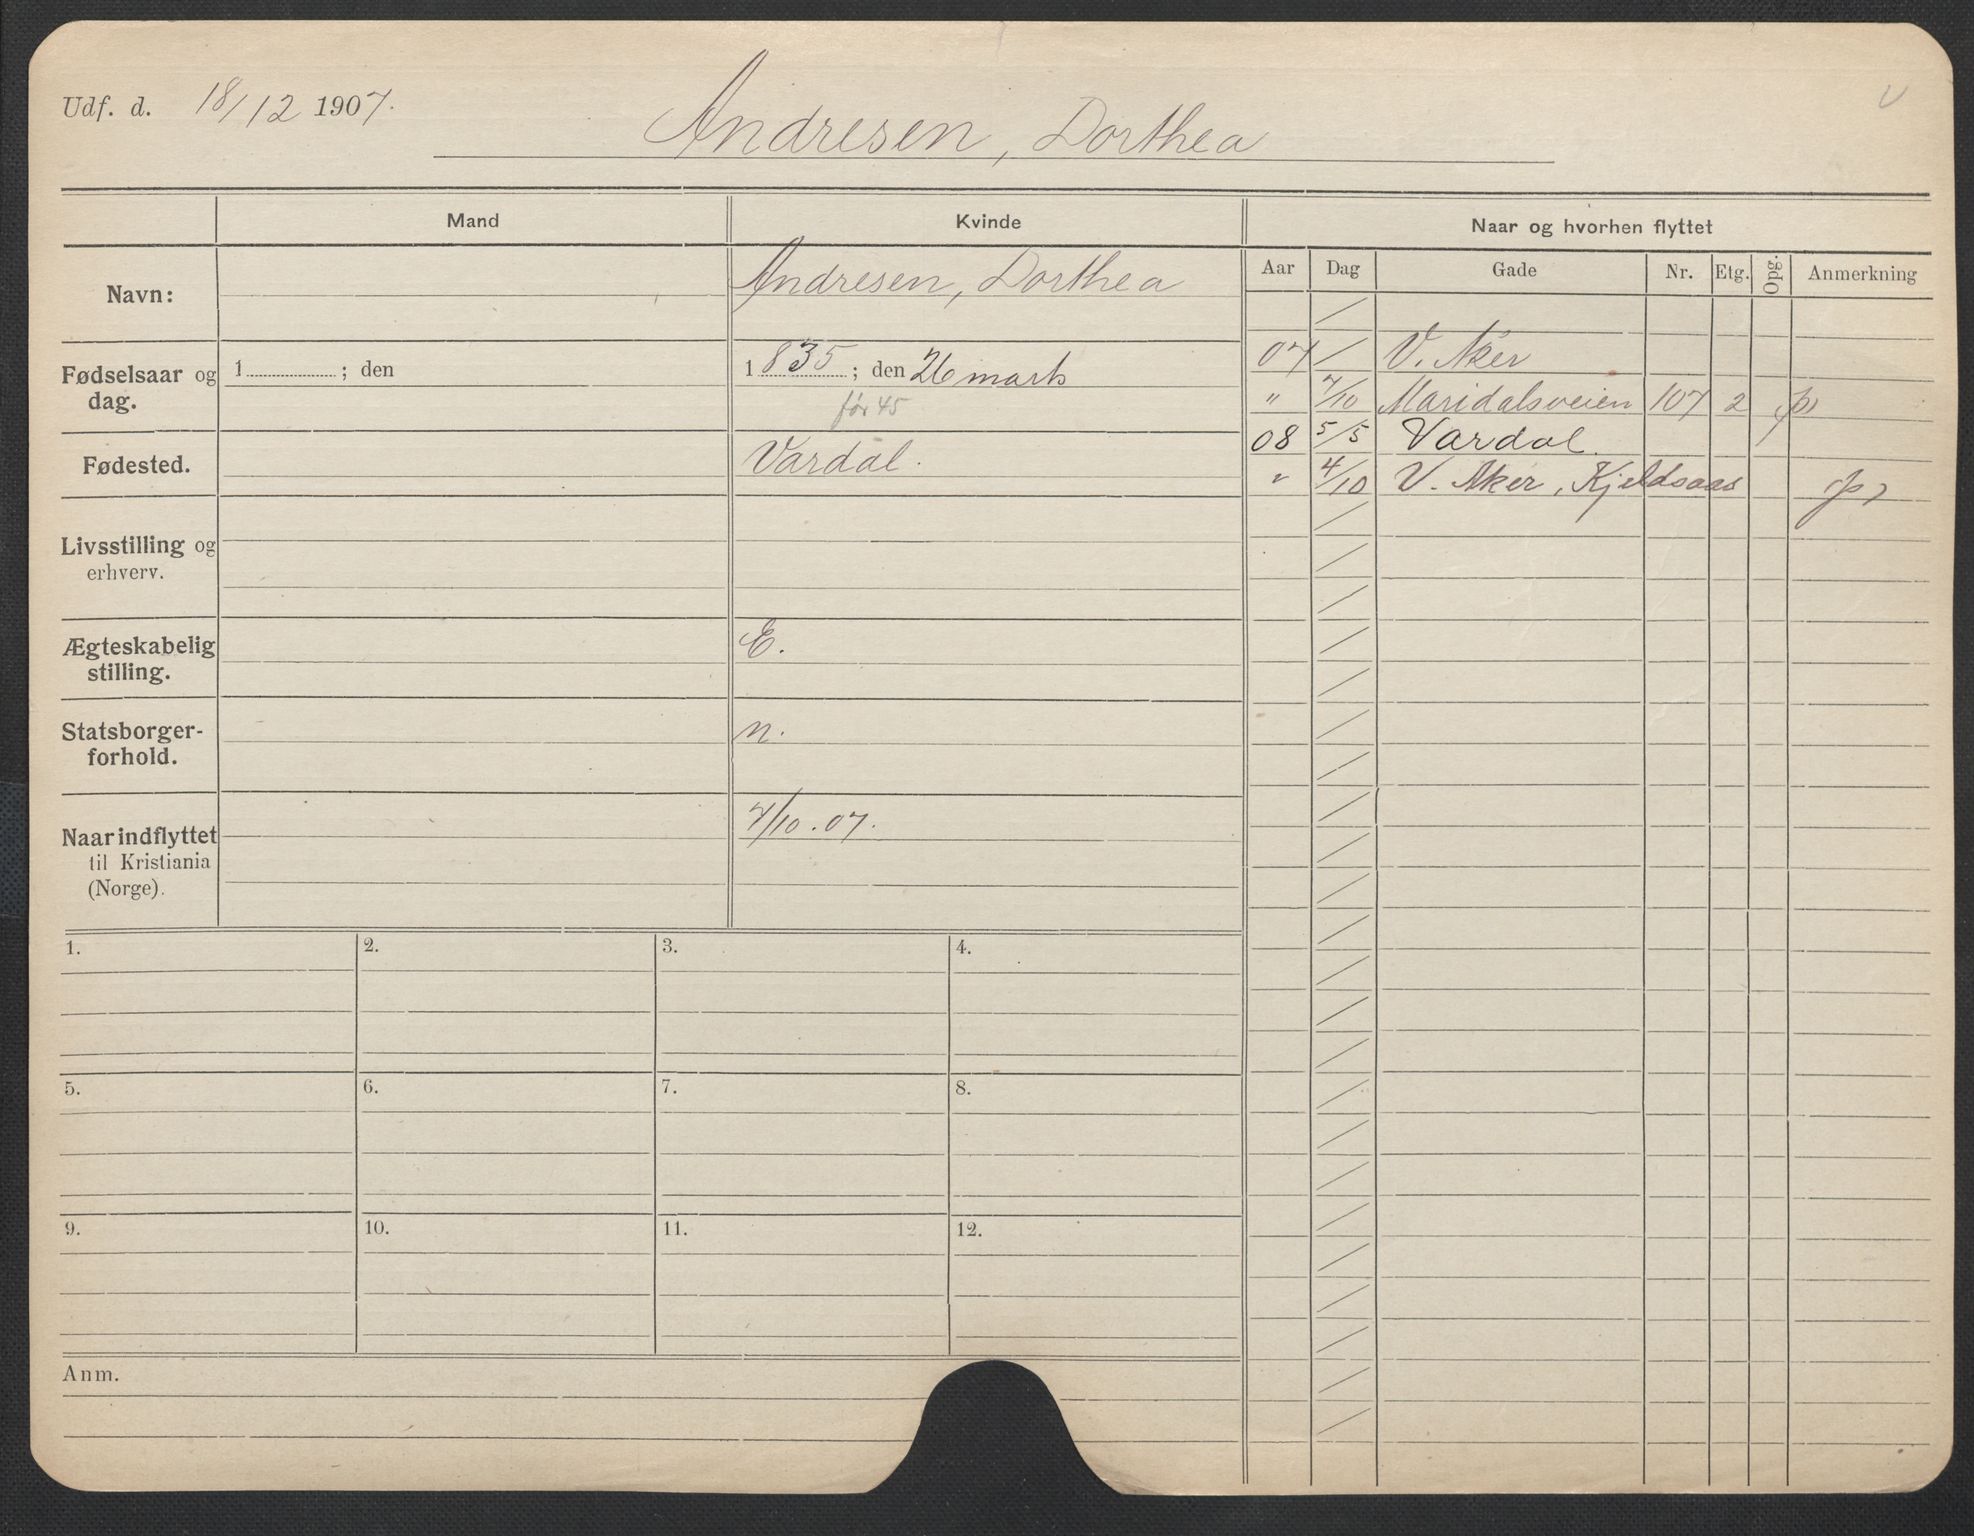 Udf. d. 18/12 1907.
Andresen, Dorthea
Mand
Kvinde
Naar og hvorhen flyttet
Aar Dag Gade Nr. Etg. Opg. Anmerkning
Navn:
Andresen, Dorthea
Fødselsaar og dag.
1 ; den
1835; den 26 marts
før 45
Fødested.
Vardal.
Livsstilling og
erhverv.
Ægteskabelig
stilling.
E.
Statsborger-
forhold.
n.
Naar indflyttet
til Kristiania
(Norge).
7/10. 07.
07 / V. Aker
" 7/10 Maridalsveien 107 2
08 5/5 Vardal.
" 4/10 V. Aker, Kjeldsaas
1. 2. 3. 4.
5. 6. 7. 8.
9. 10. 11. 12.
Anm.